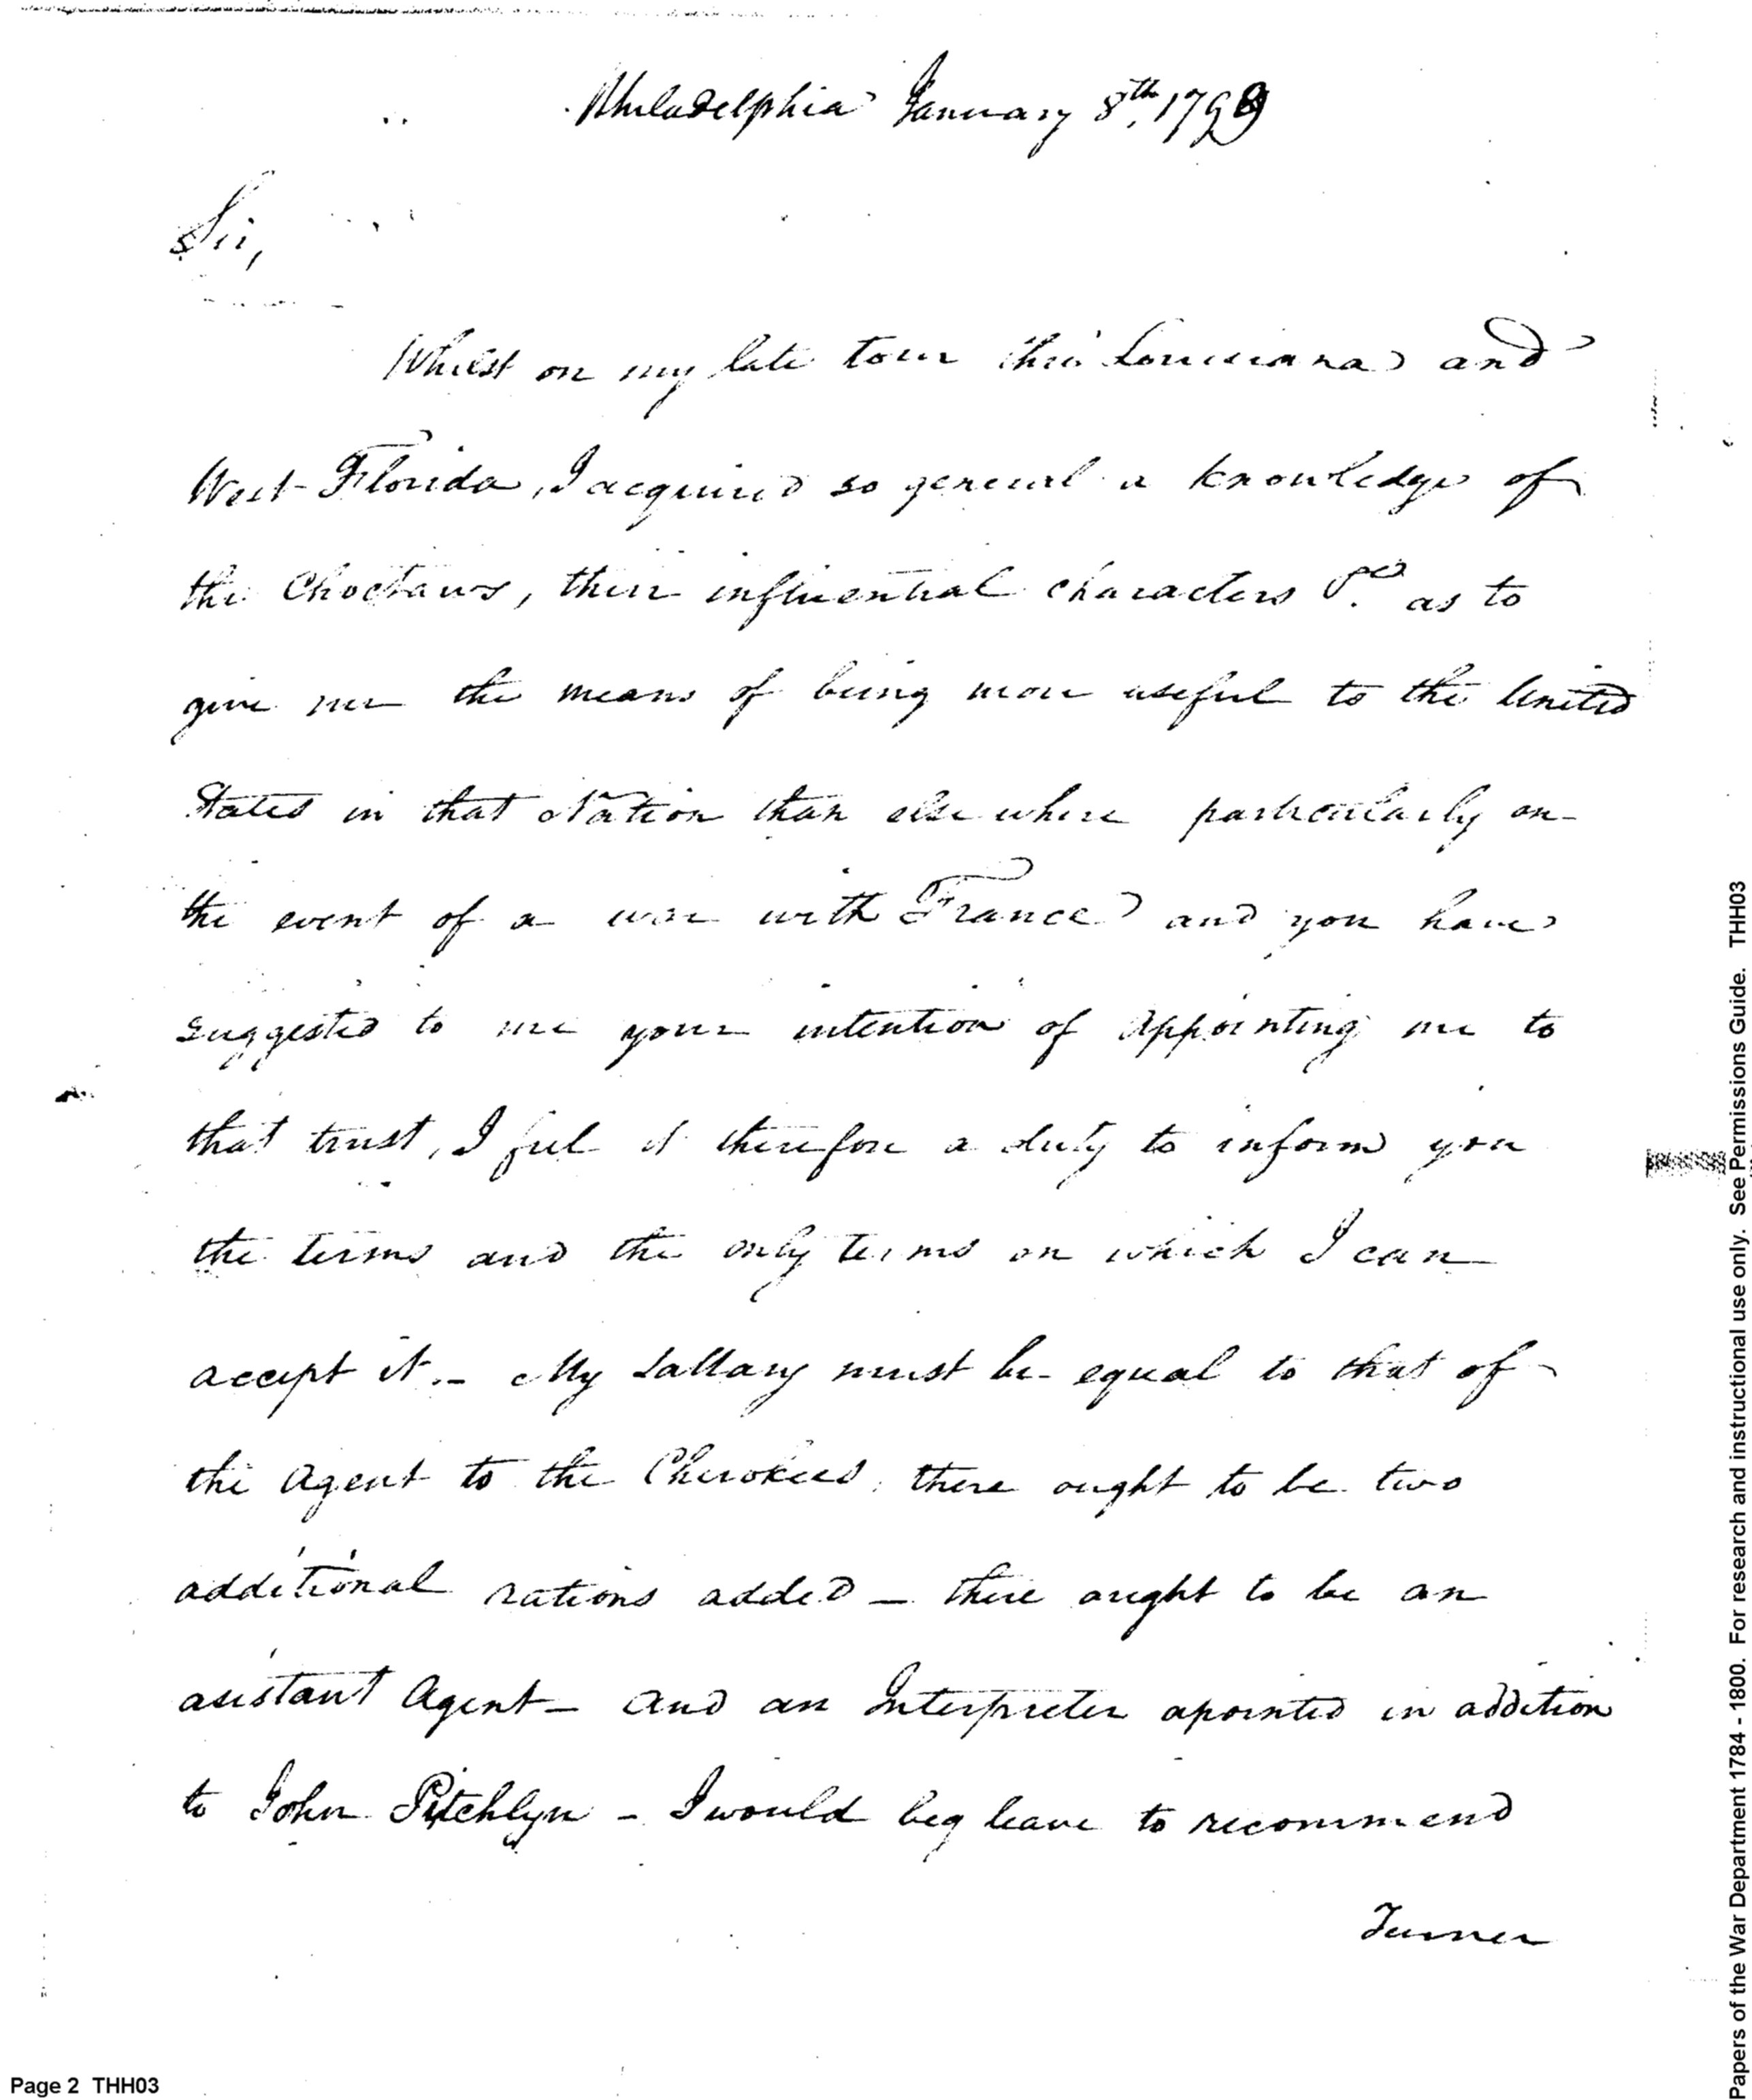 Philadelphia January 8th, 1799
Sir,
Whilst on my late tour thro' Louisiana and
West Florida, I acquired so general a knowledge of
the Choctaws, their influential characters &c as to
give me the means of being more useful to the United
States in that Nation than else where particularly on
the event of a war with France and you have
suggested to me your intention of appointing me to
that trust, I feel it therefore a duty to inform you
the terms and the only terms on which I can
accept it. - My Sallary must be equal to that of
the Agent to the Cherokees, there ought to be two
additional rations added - there ought to be an
asistant Agent - and an Interpreter apointed in addition
to John Pitchlyn - I would beg leave to recommend
Turner
Page 2 THH03
Papers of the War Department 1784 - 1800. For research and instructional use only. See Permissions Guide. THH03